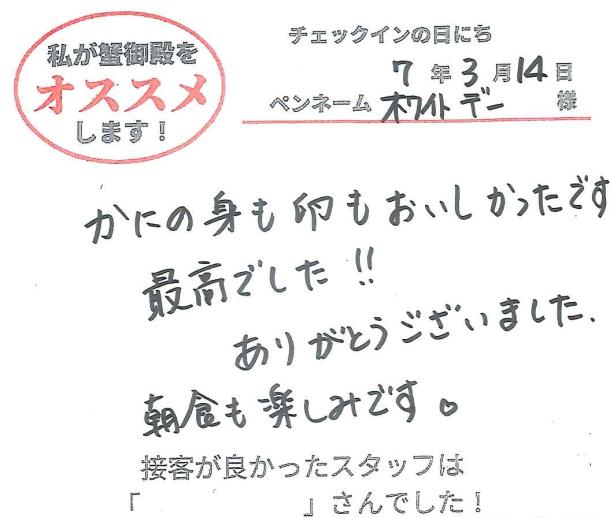 私が蟹御殿を
オススメ
します！
チェックインの日にち
7年3月14日
ペンネーム ホワイトデー 様
かにの身も卵もおいしかったです
最高でした!!
ありがとうございました.
朝食も楽しみです。
接客が良かったスタッフは
「　　　　　　」さんでした！